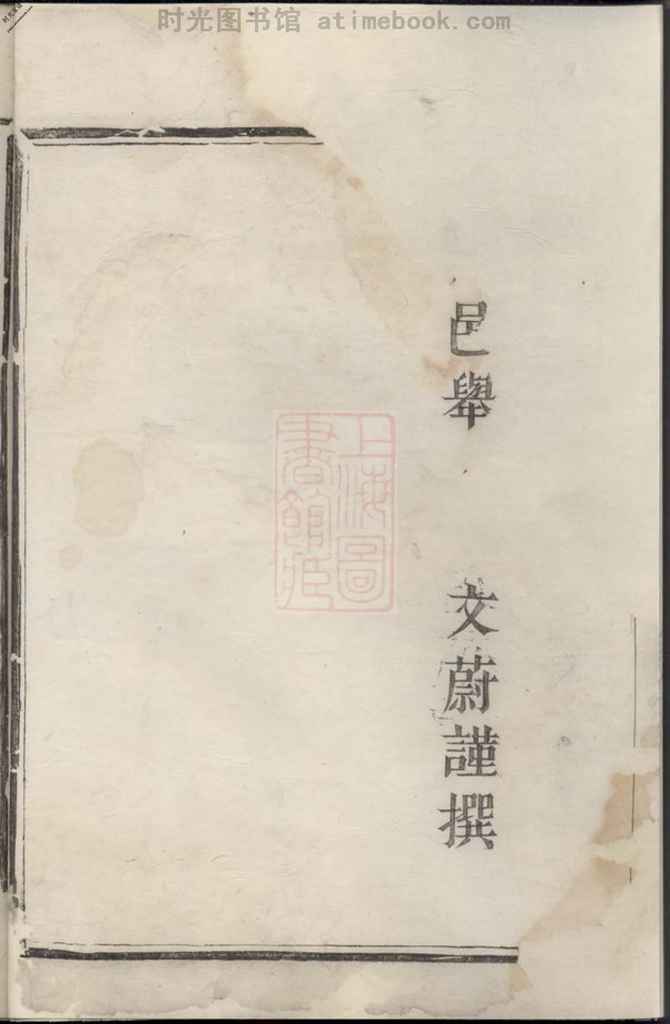 时光图书馆 atimebook.com
邑舉 文蔚謹撰
上海圖
書館藏